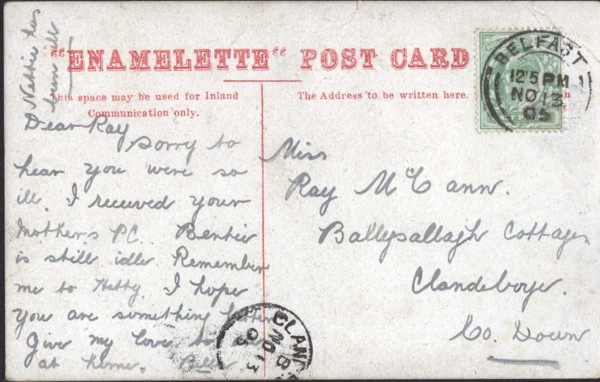 Nattie has
been ill
"ENAMELETTE" POST CARD
This space may be used for Inland
Communication only.
The Address to be written here.
BELFAST
12 5 PM
NO 13
05
Dear Ray
Sorry to
hear you were so
ill. I received your
Mother's P.C. Bertie
is still idle. Remember
me to Hetty. I hope
you are something better
Give my love to
at home.
Miss
Ray McCann.
Ballysallagh Cottages
Clandeboye.
Co. Down
CLAN
B
NO 13
05